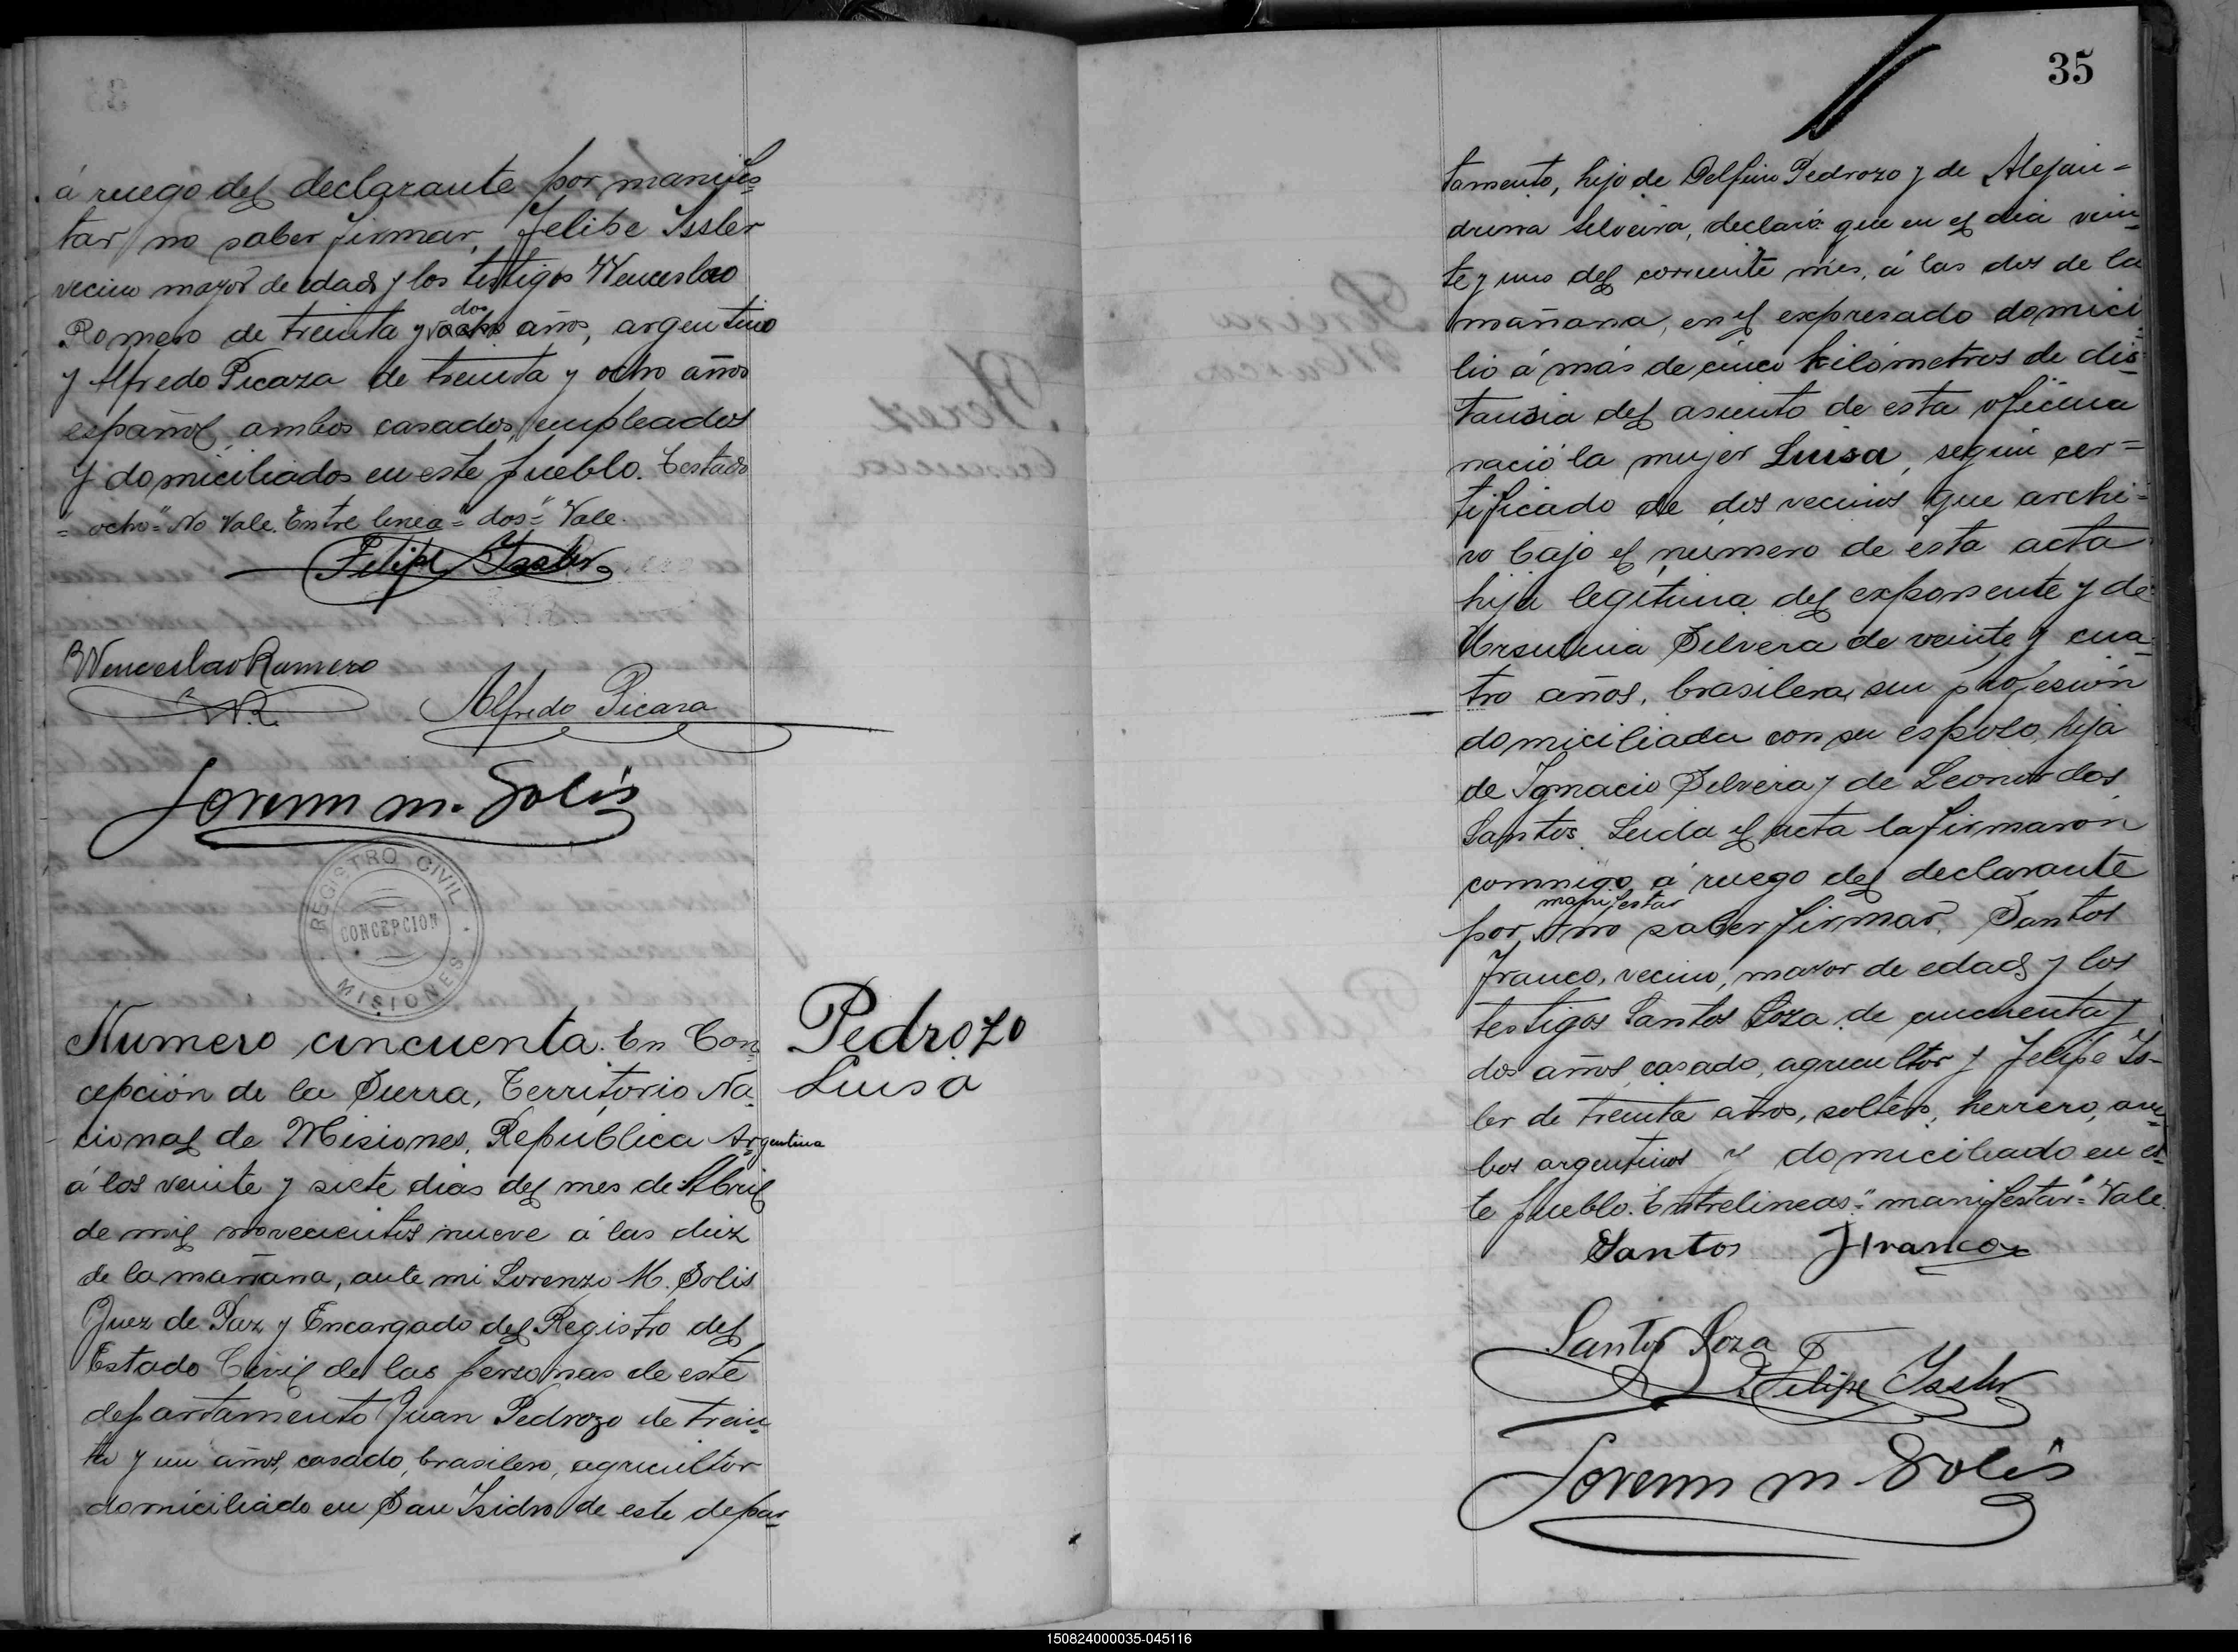 á ruego del declarante por manifes=
tar no saber firmar, Felipe Issler
vecino mayor de edad y los testigos Wenceslao
dos
Romero de treinta y ocho años, argentino
y Alfredo Picaza de treinta y ocho años
español, ambos casados, empleados
y domiciliados en este pueblo. Testado
= ocho=" No Vale. Entre linea=" dos=" Vale.
Felipe Issler
Wenceslao Romero
WR.
Alfredo Picaza
Lorenzo M. Solís
REGISTRO CIVIL
CONCEPCION
MISIONES
Numero cincuenta. En Con=
cepción de la Sierra, Territorio Na=
cional de Misiones, República Argentina
á los veinte y siete dias del mes de Abril
de mil novecientos nueve á las diez
de la mañana, ante mi Lorenzo M. Solis
Juez de Paz y Encargado del Registro del
Estado Civil de las personas de este
departamento Juan Pedrozo de trein=
ta y un años, casado, brasilero, agricultor
domiciliado en San Isidro de este depar=
Pedrozo
Luisa
35
tamento, hijo de Delfino Pedrozo y de Alejan=
drina Silveira, declaró: que en el dia vein=
te y uno del corriente mes, á las dos de la
mañana, en el expresado domici=
lio á más de cinco kilómetros de dis=
tansia del asiento de esta oficina
nació la mujer Luisa, según cer=
tificado de dos vecinos que archi=
vo bajo el número de esta acta
hija legítima del exponente y de
Ursulina Silvera de veinte y cua=
tro años, brasilera, sin profesión
domiciliada con su esposo, hija
de Ignacio Silvera y de Leonor dos
Santos. Leida el acta la firmaron
conmigo, á ruego del declarante
manifestar
por no saber firmar, Santos
Franco, vecino, mayor de edad y los
testigos Santos Soza de cincuenta y
dos años, casado, agricultor y Felipe Is=
ler de treinta años, soltero, herrero, am=
bos argentinos y domiciliado en es=
te pueblo. Entrelineas=" manifestar=" Vale.
Santos Franco
Santos Soza
Felipe Issler
Lorenzo M. Solís
150824000035-045116